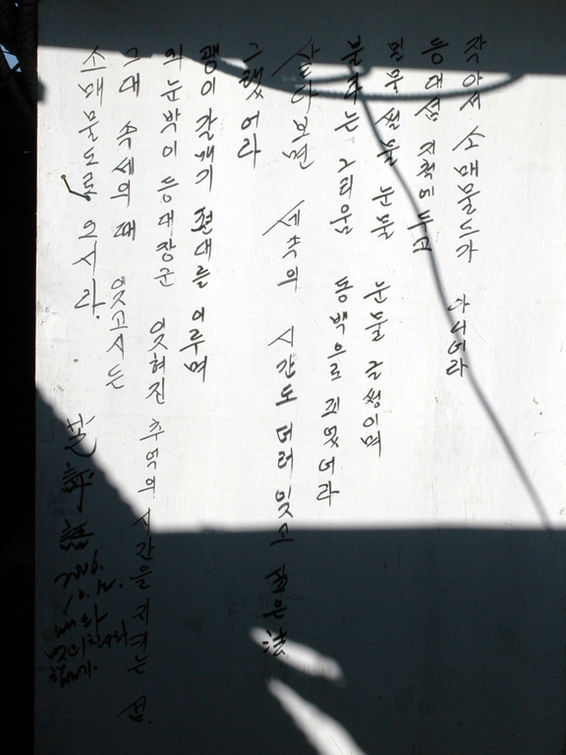 작아서 소매물도가 아니더라
등대섬 지척에 두고
밀물 썰물 눈물 눈물 글썽이며
불타는 그리움 동백으로 피었더라
살다보면 세속의 시간도 더러 잊고 싶은
그랬어라
괭이갈매기 편대를 이루며
외눈박이 등대장군 잊혀진 추억의 시간을 지키는 섬.
그대 속세의 때 잊고시든
소매물도로 오시라.
2006.
함께.